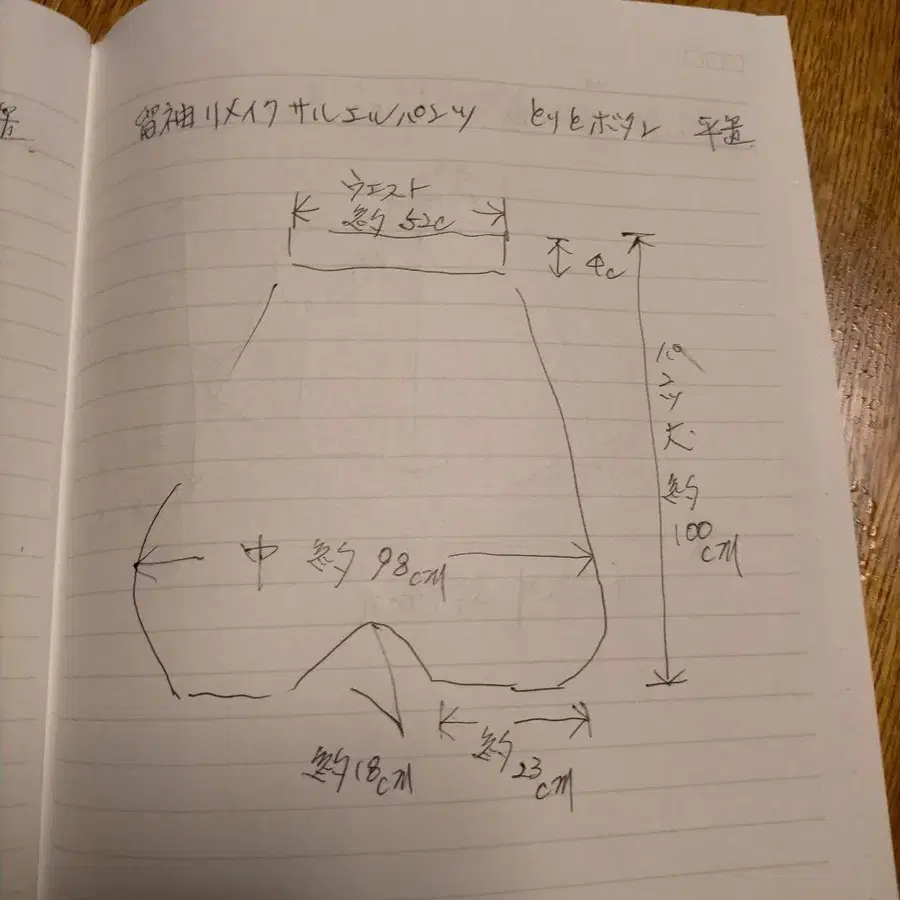 留袖リメイクサルエルパンツ とりとボタン 平置
ウエスト
約 52c
4c
パンツ丈 約 100cm
中 約 98cm
約18cm
約 23cm